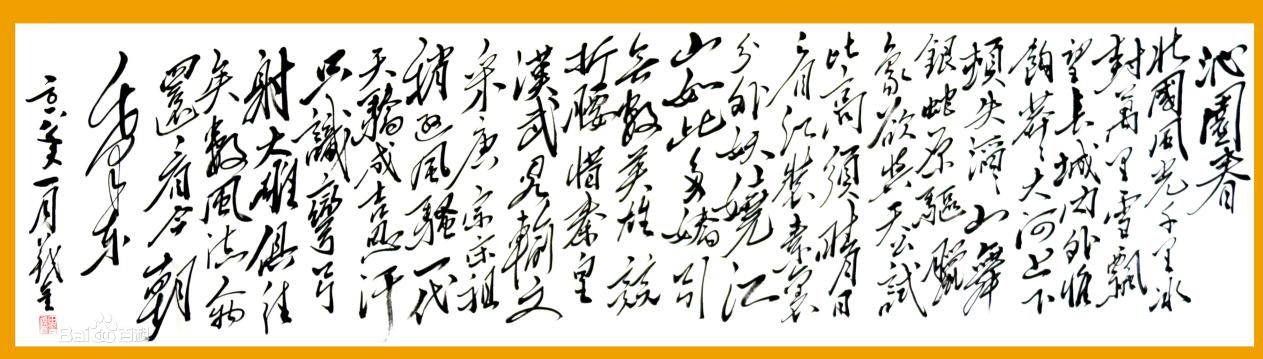 沁園春
北國風光千里冰
封萬里雪飄
望長城内外惟
餘莽莽大河上下
頓失滔滔山舞
銀蛇原驅臘
象欲與天公試
比高須晴日
看紅裝素裹
分外妖嬈江
山如此多嬌引
無數英雄競
折腰惜秦皇
漢武略輸文
采唐宗宋祖
稍遜風騷一代
天驕成吉思汗
只識彎弓
射大雕俱往
矣數風流人物
還看今朝
毛澤東
一月
Bai百科